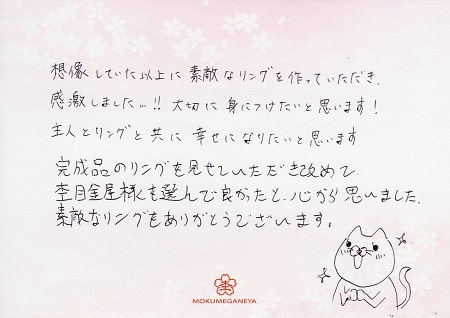 想像していた以上に素敵なリングを作っていただき、
感激しました…!! 大切に身につけたいと思います!
主人とリングと共に幸せになりたいと思います
完成品のリングを見せていただき改めて
杢目金屋様を選んで良かったと、心から思いました。
素敵なリングをありがとうございます。
MOKUMEGANEYA